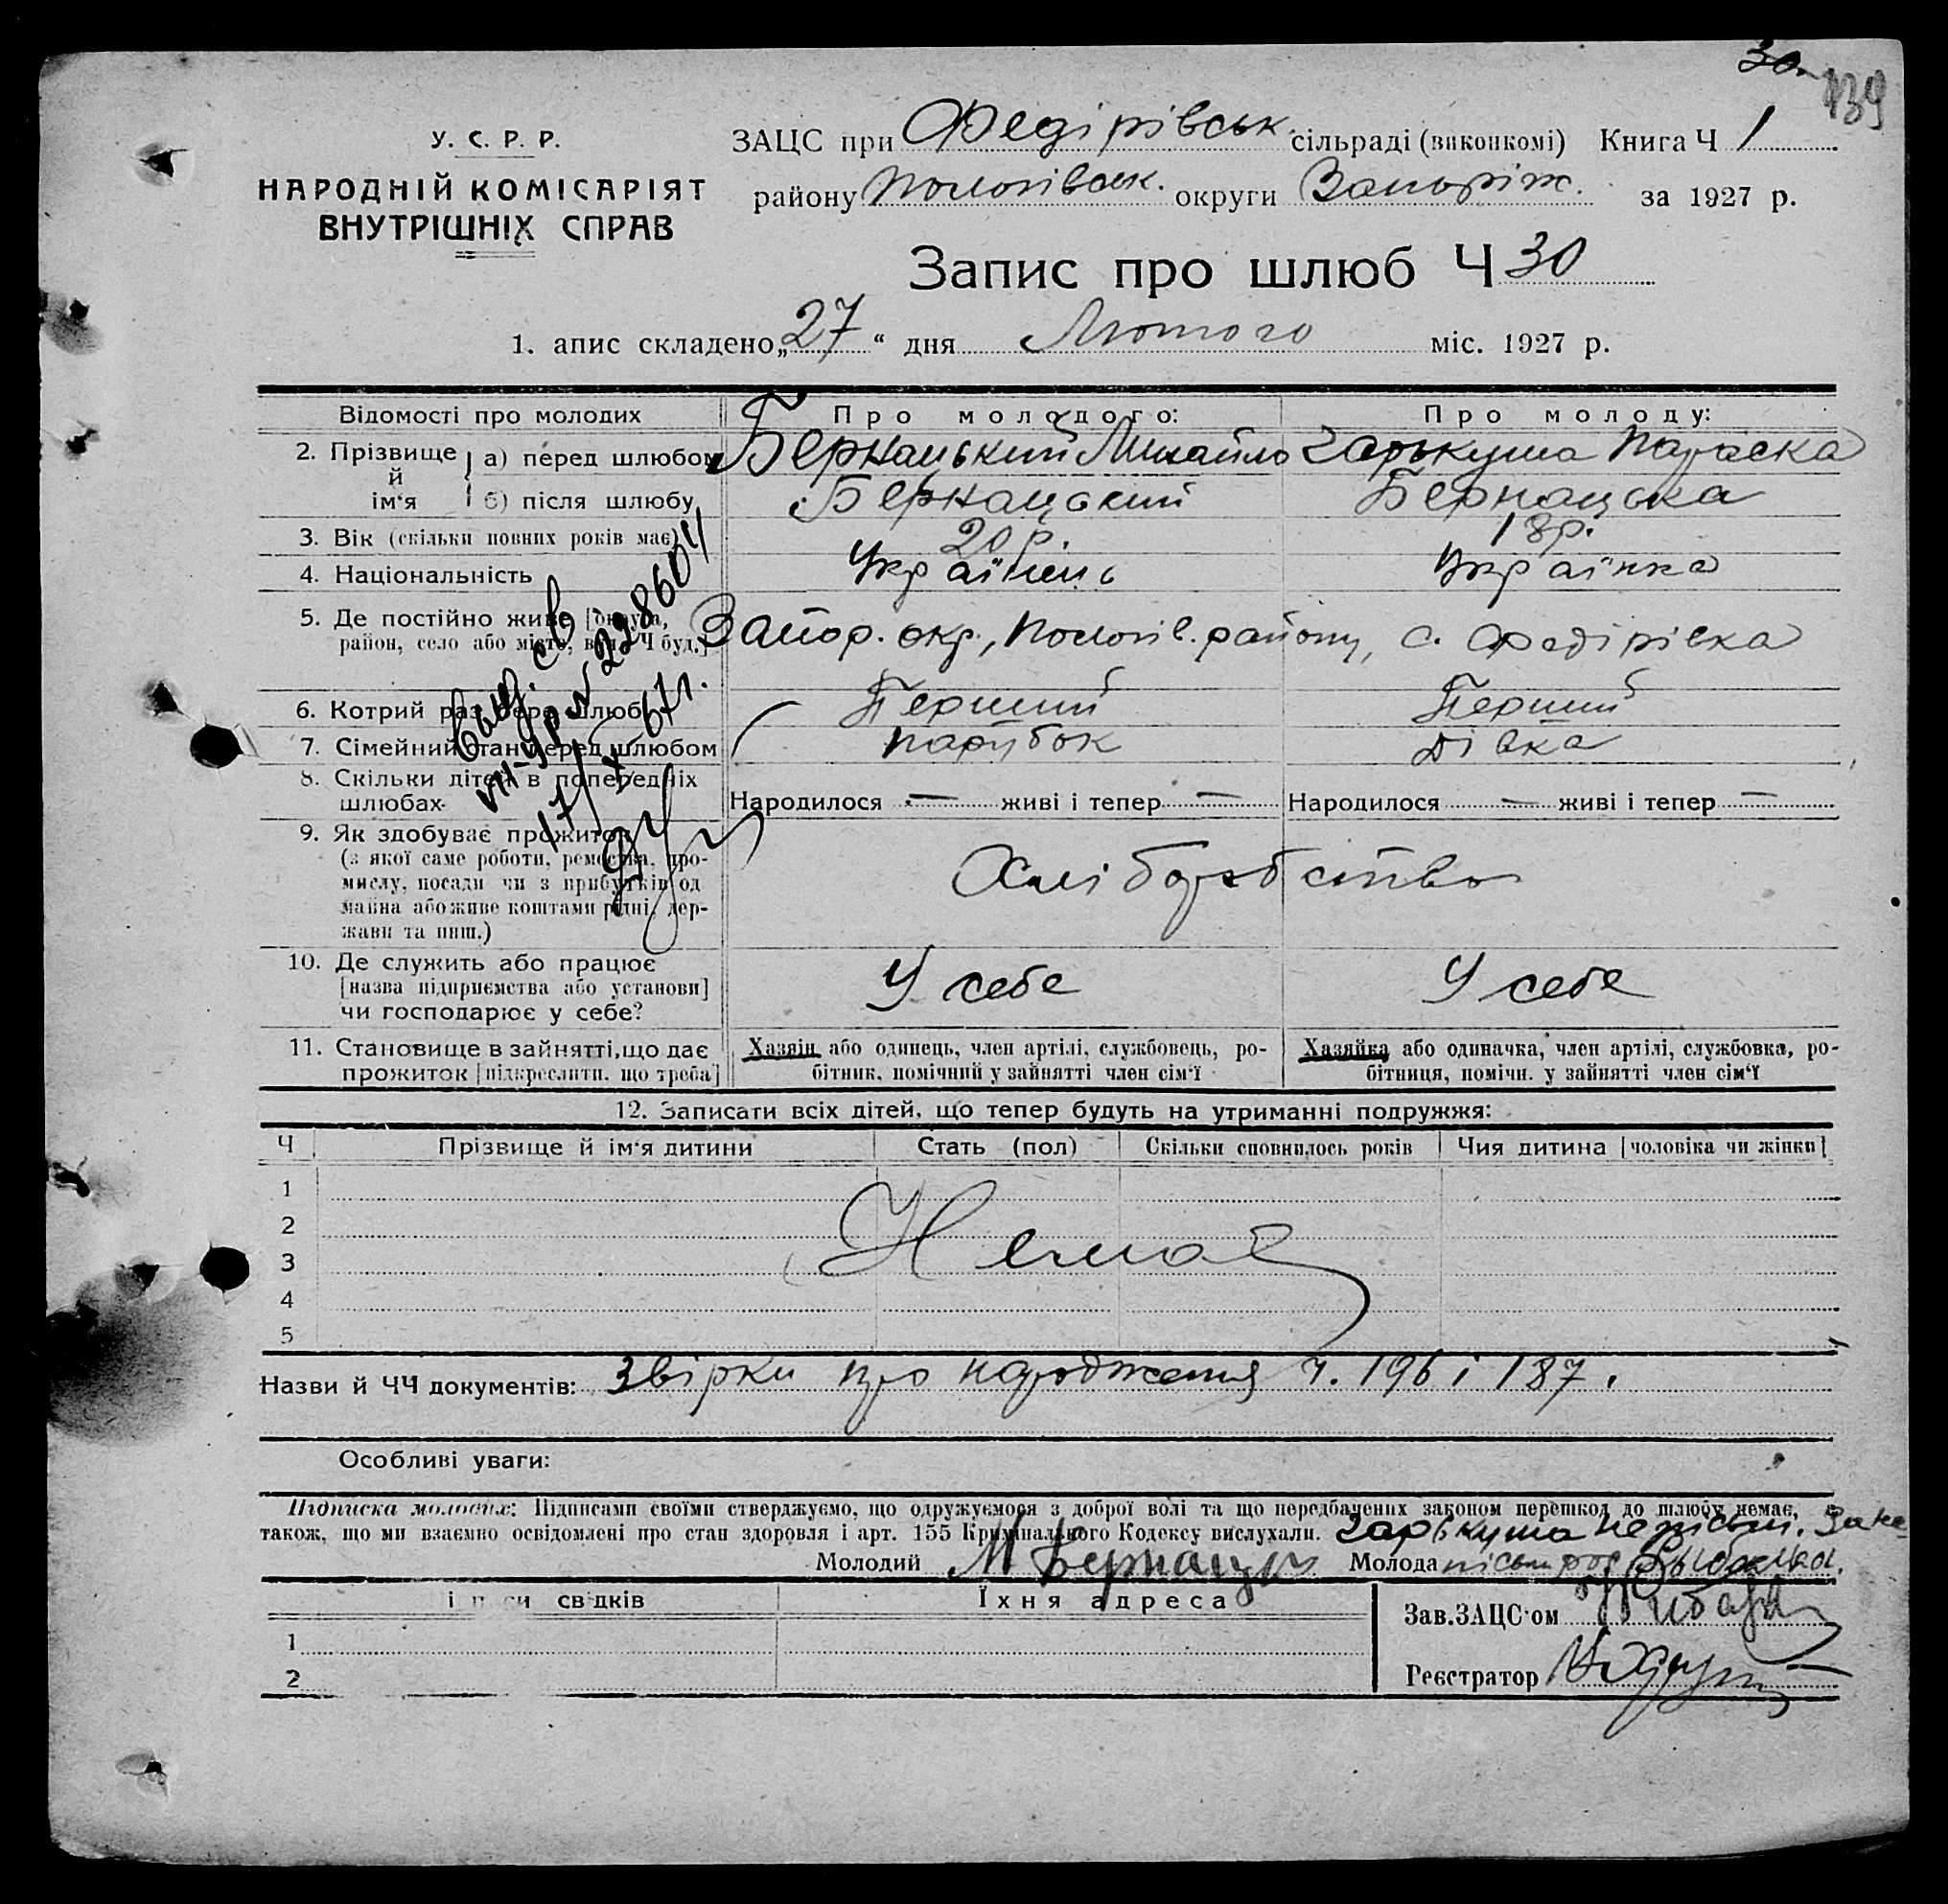 30
139
У. С. Р. Р.
НАРОДНІЙ КОМІСАРІЯТ
ВНУТРІШНІХ СПРАВ
ЗАЦС при Федірівськ. сільраді (виконкомі) Книга Ч 1
району Пологівськ. округи Запоріж. за 1927 р.
Запис про шлюб Ч 30
1. апис складено „27“ дня Лютого міс. 1927 р.
Відомості про молодих Про молодого: Про молоду:
2. Прізвище й ім‘я а) перед шлюбом Бернацький Михайло Гарькуша Параска
б) після шлюбу Бернацький Бернацька
3. Вік (скільки повних років має) 20 р. 18 р.
4. Національність Українець Українка
5. Де постійно живе [округа,
район, село або місто, вул. Ч буд.] Запор. окр., Пологів. району, с. Федірівка
6. Котрий раз бере шлюб Перший Перший
7. Сімейний стан перед шлюбом парубок дівка
8. Скільки дітей в попередніх
шлюбах Народилося — живі і тепер — Народилося — живі і тепер —
9. Як здобуває прожиток
(з якої саме роботи, ремества, про-
мислу, посади чи з прибутків од
майна або живе коштами рідні, дер-
жави та инш.) Хліборобство
Вид. с в
VIII-УР № 228604
17/X 67 г.
10. Де служить або працює
[назва підприємства або установи]
чи господарює у себе? У себе У себе
11. Становище в зайнятті, що дає
прожиток [підкреслити, що треба]
Хазяїн або одинець, член артілі, службовець, ро-
бітник, помічний у зайнятті член сім‘ї
Хазяйка або одиначка, член артілі, службовка, ро-
бітниця, помічн. у зайнятті член сім‘ї
12. Записати всіх дітей, що тепер будуть на утриманні подружжя:
Ч Прізвище й ім‘я дитини Стать (пол) Скільки сповнилось років Чия дитина [чоловіка чи жінки]
1
2
3 Немає
4
5
Назви й ЧЧ документів: Звірки про народження ч. 196 і 187.
Особливі уваги:
Підписка молодих: Підписами своїми стверджуємо, що одружуємося з доброї волі та що передбачених законом перешкод до шлюбу немає,
також, що ми взаємно освідомлені про стан здоровля і арт. 155 Кримінального Кодексу вислухали. Гарькуша непісьм. за не
Молодий М Бернацький Молода пісьм
і си св дків Їхня адреса
Зав. ЗАЦС‘ом
1
Реєстратор
2